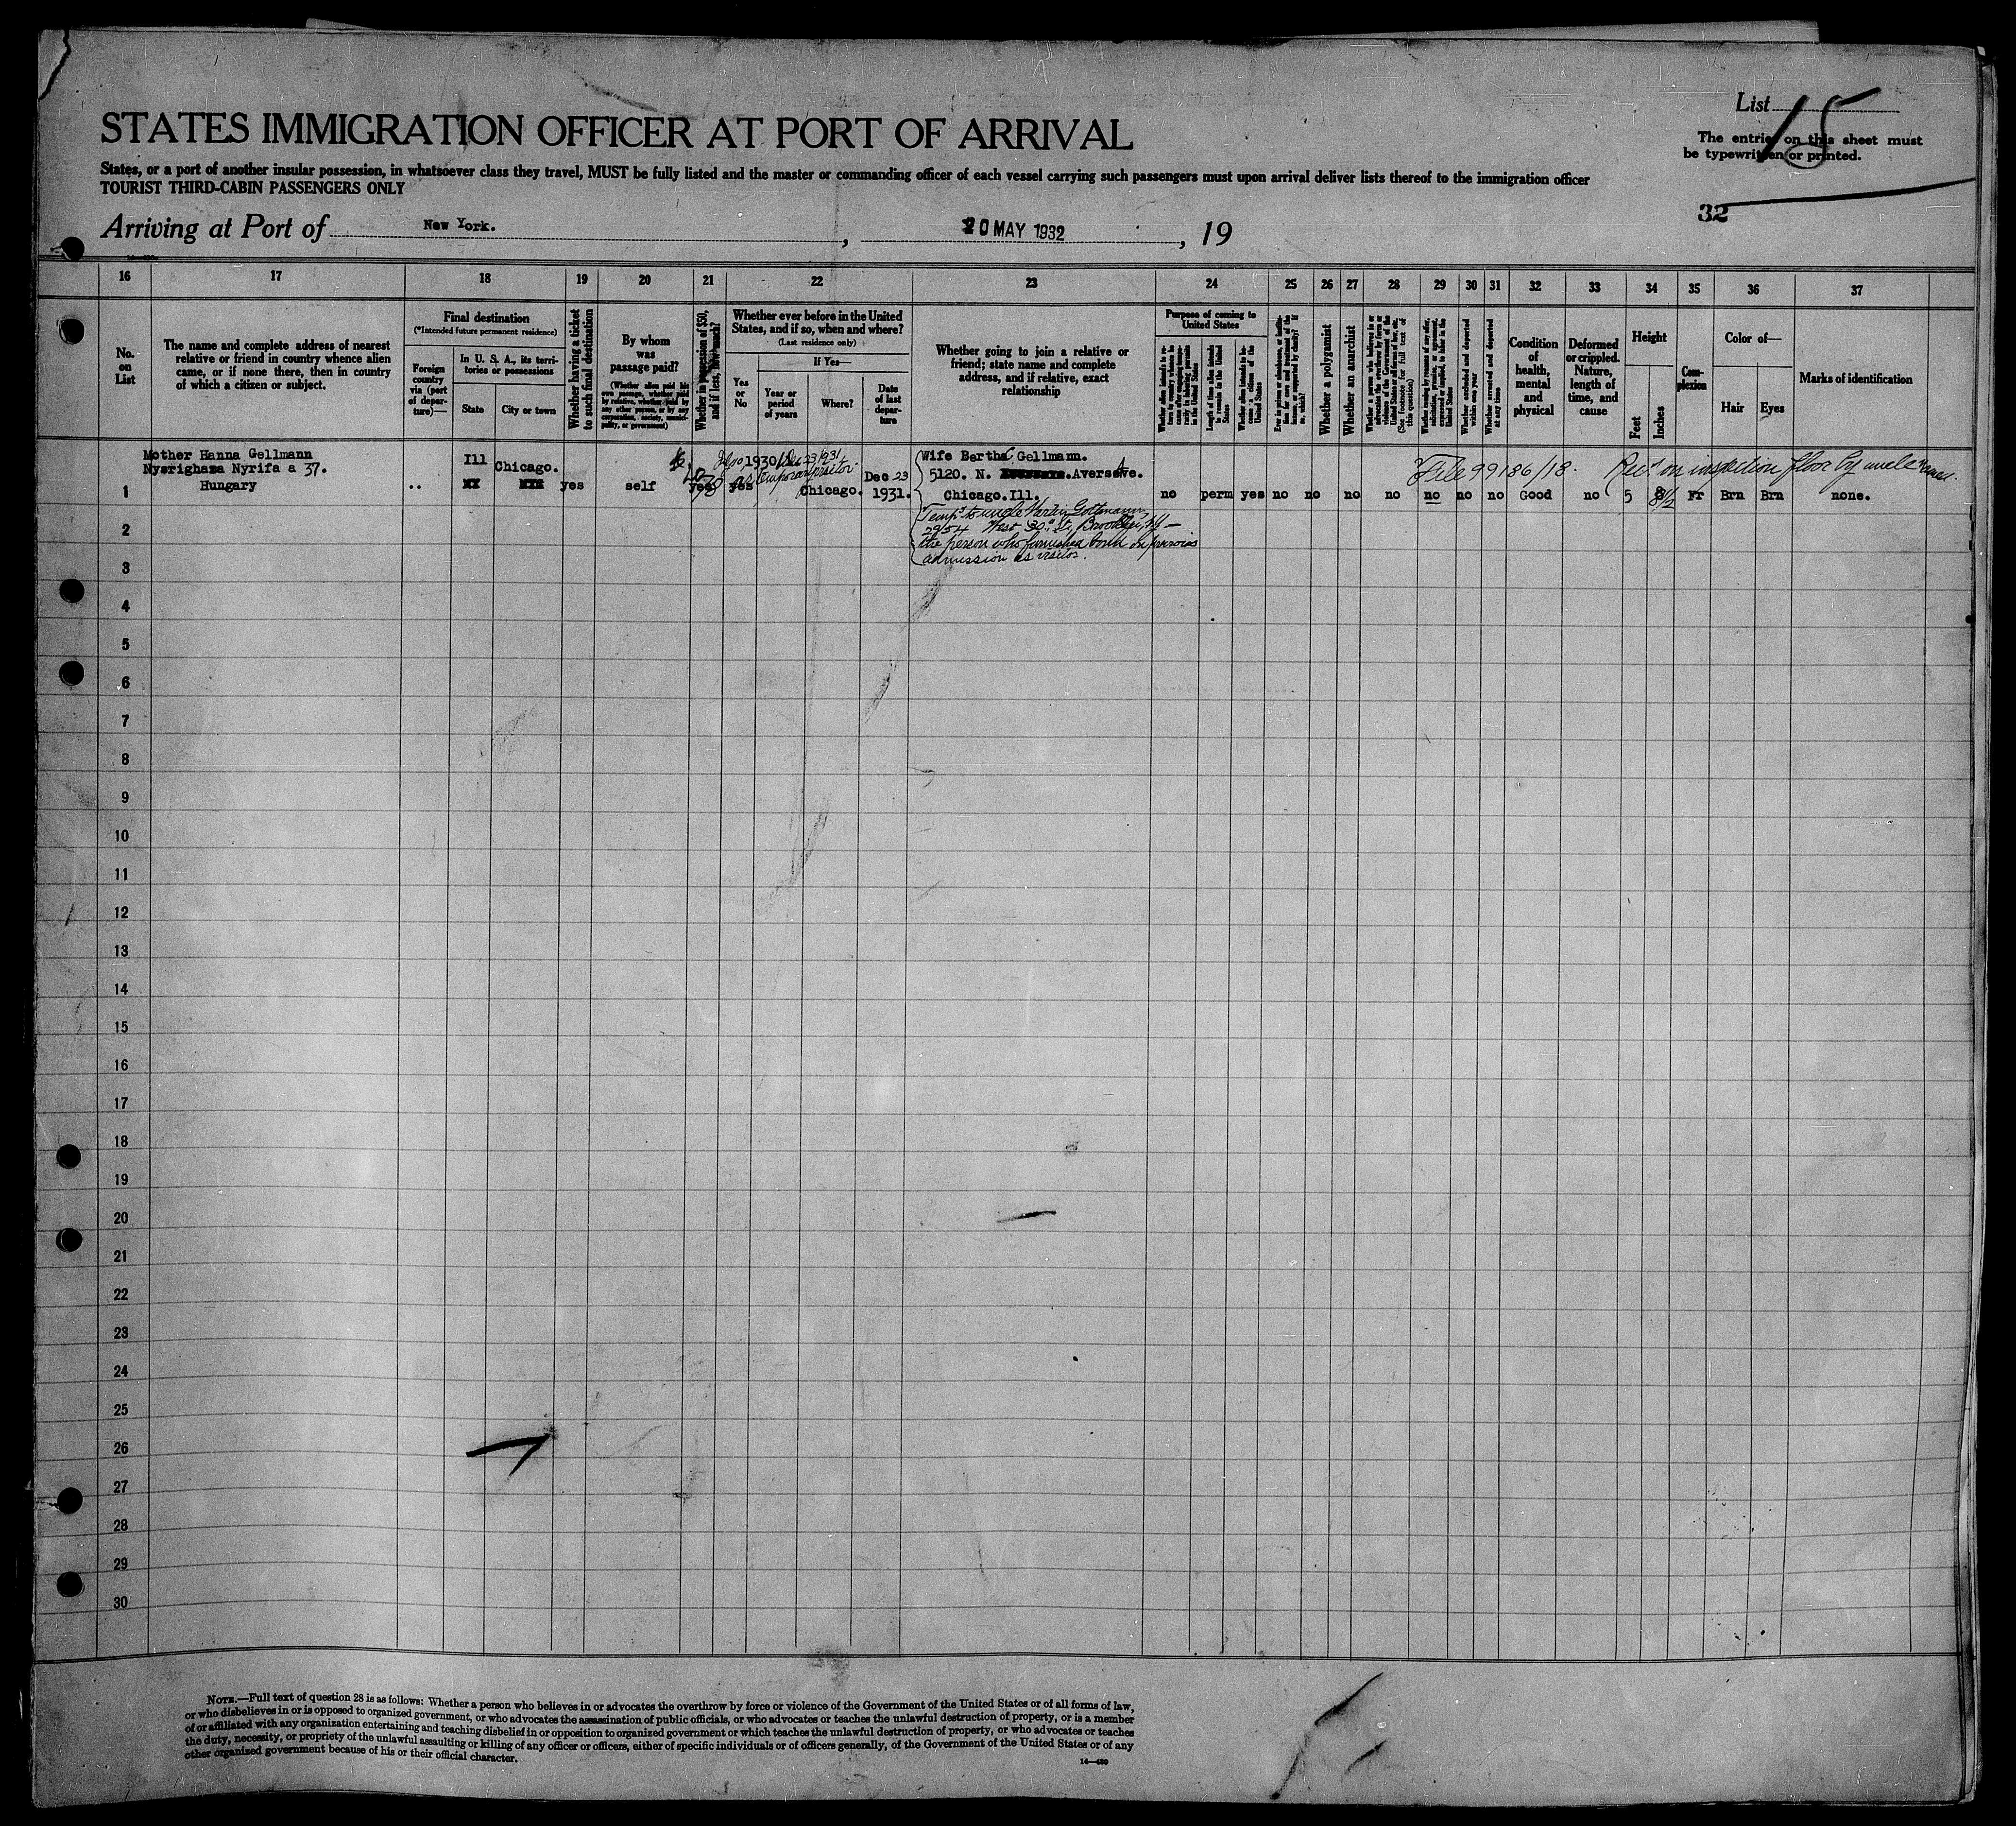 List 15
STATES IMMIGRATION OFFICER AT PORT OF ARRIVAL
The entries on this sheet must
be typewritten or printed.
States, or a port of another insular possession, in whatsoever class they travel, MUST be fully listed and the master or commanding officer of each vessel carrying such passengers must upon arrival deliver lists thereof to the immigration officer
TOURIST THIRD-CABIN PASSENGERS ONLY
32
Arriving at Port of New York. , 20 MAY 1932 , 19
16 17 18 19 20 21 22 23 24 25 26 27 28 29 30 31 32 33 34 35 36 37
No.
on
List
The name and complete address of nearest
relative or friend in country whence alien
came, or if none there, then in country
of which a citizen or subject.
Final destination
(*Intended future permanent residence)
Foreign
country
via (port
of depar-
ture)—
In U. S. A., its terri-
tories or possessions
State
City or town
Whether having a ticket
to such final destination
By whom
was
passage paid?
(Whether alien paid his
own passage, whether paid
by relative, whether paid by
any other person, or by any
corporation, society, munici-
pality, or government)
Whether in possession of $50,
and if less, how much?
Whether ever before in the United
States, and if so, when and where?
(Last residence only)
Yes
or
No
If Yes—
Year or
period
of years
Where?
Date
of last
depar-
ture
Whether going to join a relative or
friend; state name and complete
address, and if relative, exact
relationship
Purpose of coming to
United States
Whether alien intends to re-
turn to country whence he
came after engaging tempo-
rarily in laboring pursuits
in the United States
Length of time alien intends
to remain in the United
States
Whether alien intends to be-
come a citizen of the
United States
Whether a polygamist
Whether an anarchist
(See footnote for full text of
this question)
Whether excluded and deported
within one year
Whether arrested and deported
at any time
Condition
of
health,
mental
and
physical
Deformed
or crippled.
Nature,
length of
time, and
cause
Height
Feet
Inches
Com-
plexion
Color of—
Hair
Eyes
Marks of identification
Mother Hanna Gellmann
Nyarighaza Nyrifa a 37.
Hungary
Ill
Chicago.
1930/Dec 23/1931
as temporary visitor.
Wife Bertha Gellmann.
5120. N. Averseve.
Chicago.Ill.
File 99186/18. Rec'd on inspection floor by uncle
1 .. yes self yes yes Chicago. Dec 23 1931. no perm yes no no no no no no no Good no 5 8½ Fr Brn Brn none.
Temp'y to uncle Martin Gottmann,
2954 West 30th St., Brooklyn, NY —
the person who furnished bond on previous
admission as visitor.
2
3
4
5
6
7
8
9
10
11
12
13
14
15
16
17
18
19
20
21
22
23
24
25
26
27
28
29
30
NOTE.—Full text of question 28 is as follows: Whether a person who believes in or advocates the overthrow by force or violence of the Government of the United States or of all forms of law,
or who disbelieves in or is opposed to organized government, or who advocates the assassination of public officials, or who advocates or teaches the unlawful destruction of property, or is a member
of or affiliated with any organization entertaining and teaching disbelief in or opposition to organized government or which teaches the unlawful destruction of property, or who advocates or teaches
the duty, necessity, or propriety of the unlawful assaulting or killing of any officer or officers, either of specific individuals or of officers generally, of the Government of the United States or of any
other organized government because of his or their official character.
14—480